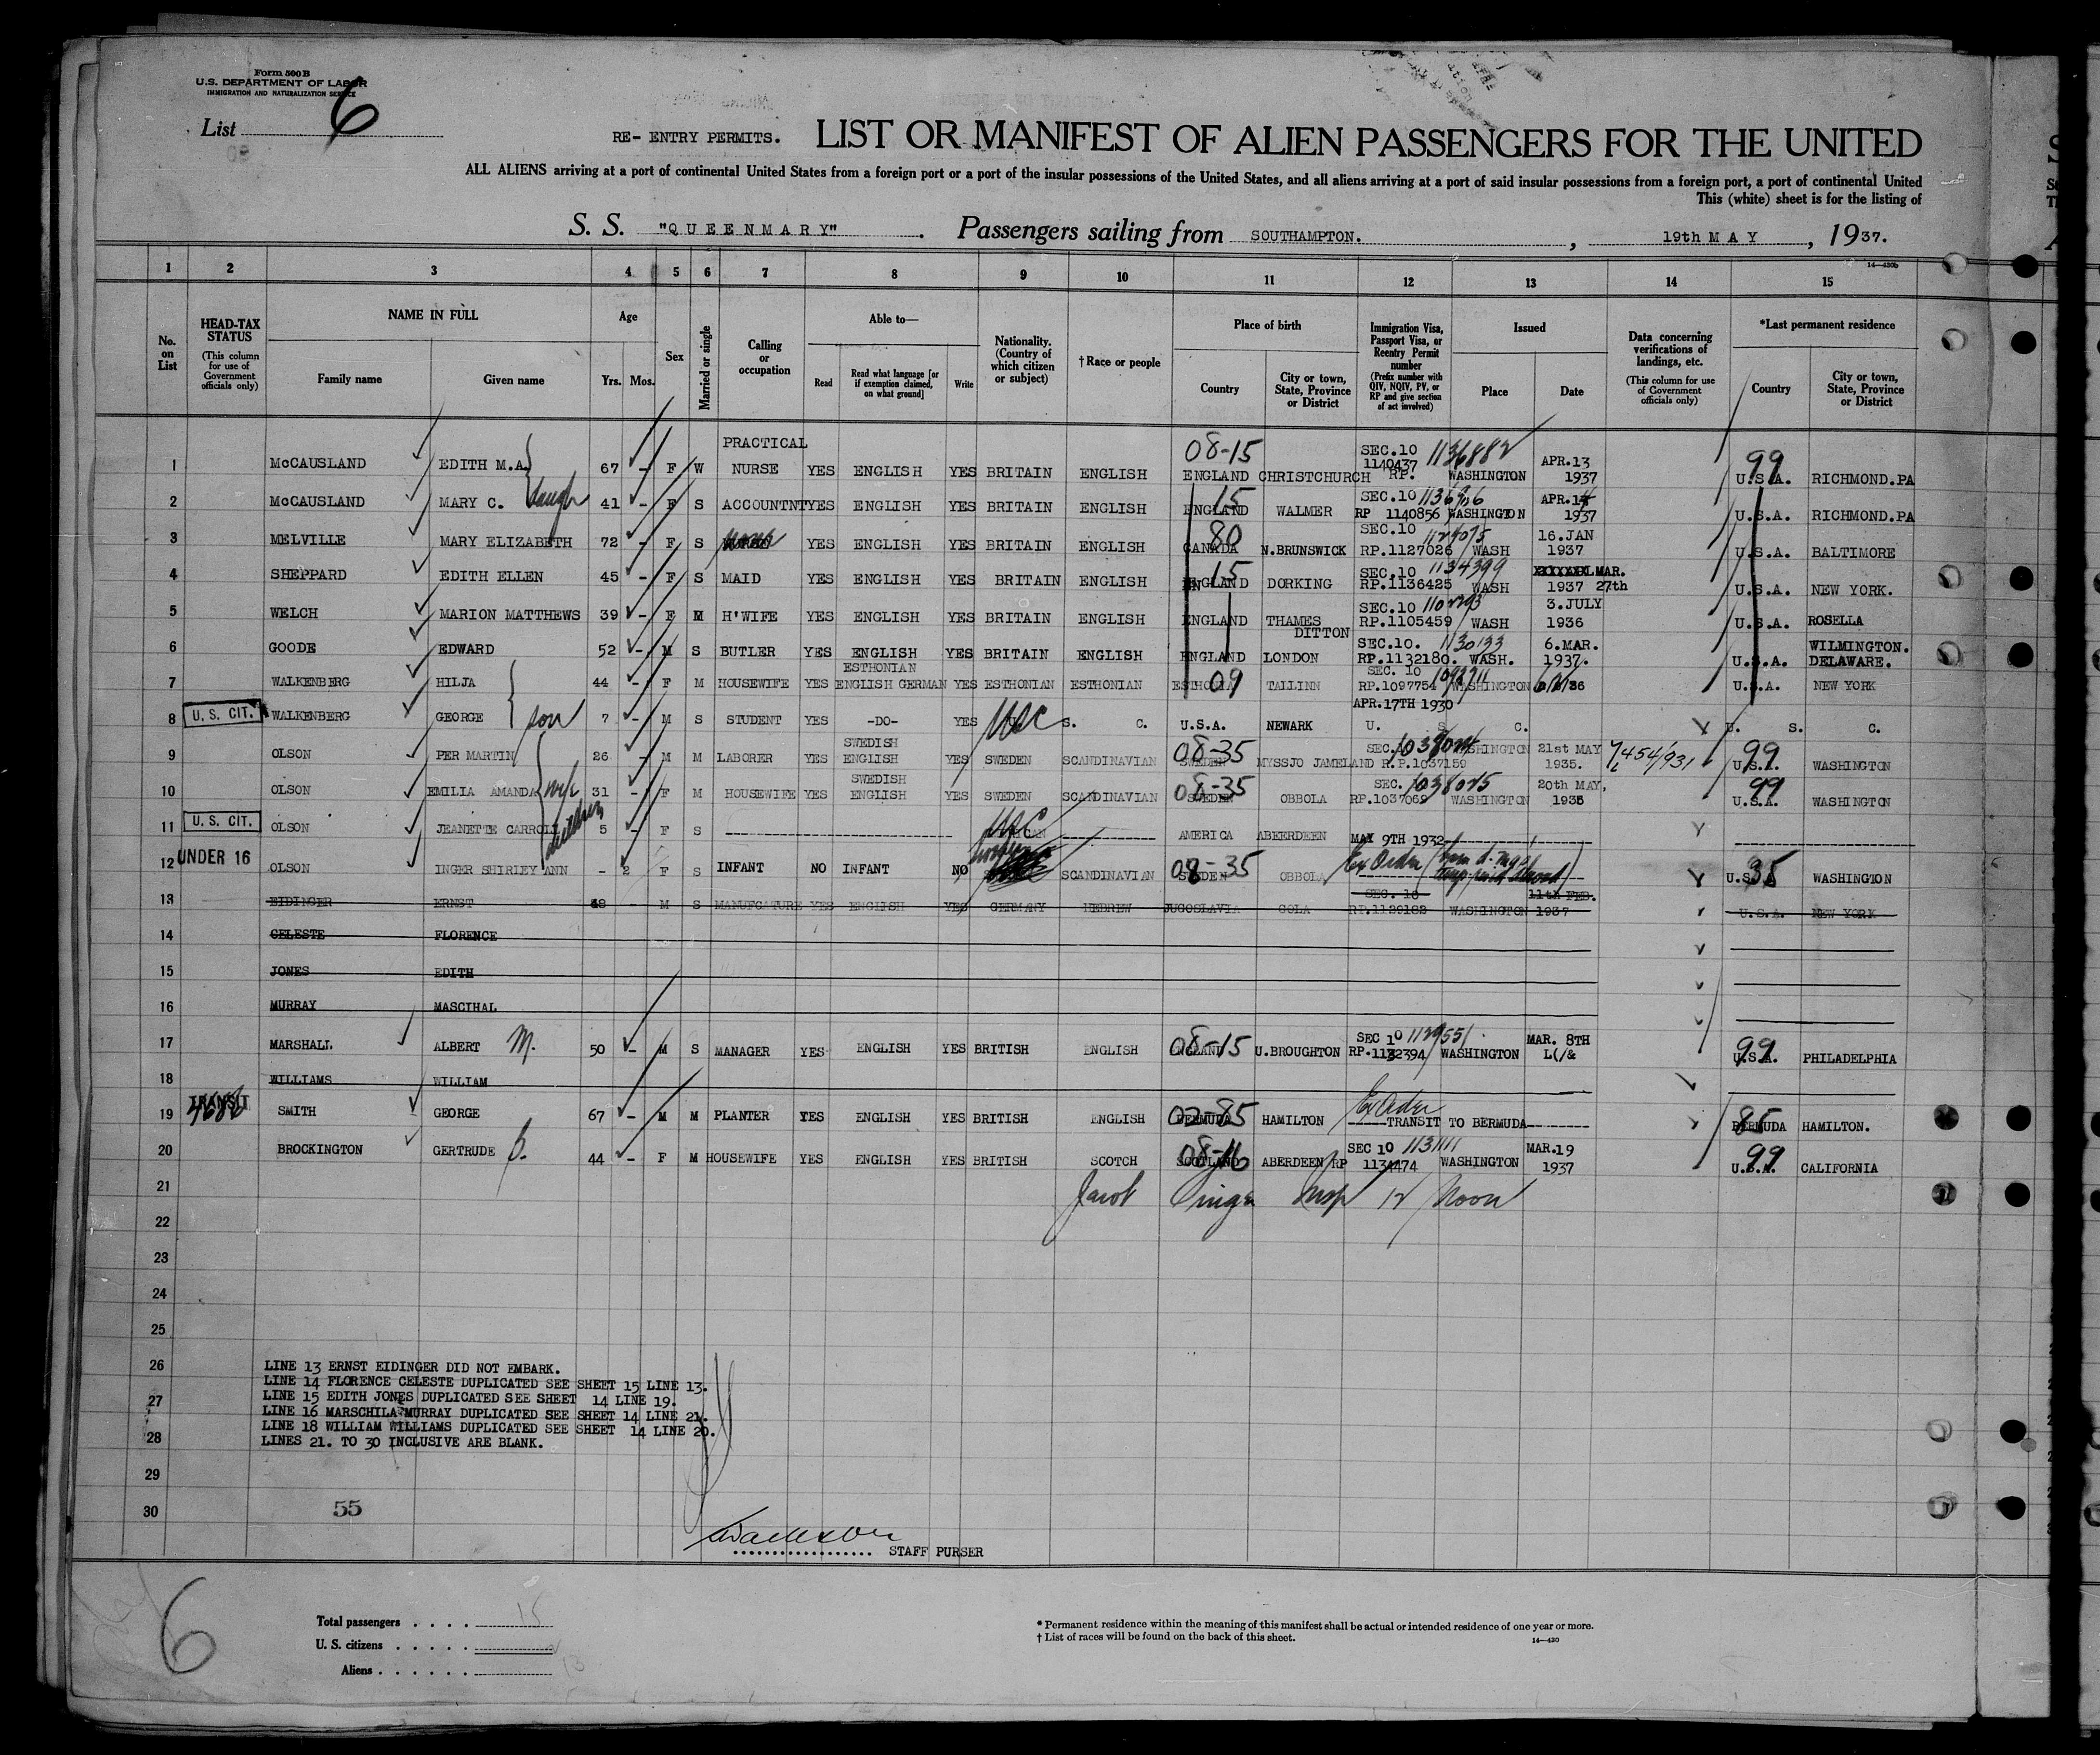 Form 500B
U.S. DEPARTMENT OF LABOR
IMMIGRATION AND NATURALIZATION SERVICE
List 6
RE- ENTRY PERMITS. LIST OR MANIFEST OF ALIEN PASSENGERS FOR THE UNITED
ALL ALIENS arriving at a port of continental United States from a foreign port or a port of the insular possessions of the United States, and all aliens arriving at a port of said insular possessions from a foreign port, a port of continental United
This (white) sheet is for the listing of
S. S. "QUEENMARY" Passengers sailing from SOUTHAMPTON. , 19th MAY , 1937.
14—430b
1 2 3 4 5 6 7 8 9 10 11 12 13 14 15
No. on List
HEAD-TAX STATUS (This column for use of Government officials only)
NAME IN FULL Family name Given name
Age Yrs. Mos.
Sex
Married or single
Calling or occupation
Able to— Read Read what language [or if exemption claimed, on what ground] Write
Nationality. (Country of which citizen or subject)
†Race or people
Place of birth Country City or town, State, Province or District
Immigration Visa, Passport Visa, or Reentry Permit number (Prefix number with QIV, NQIV, PV, or RP and give section of act involved)
Issued Place Date
Data concerning verifications of landings, etc. (This column for use of Government officials only)
*Last permanent residence Country City or town, State, Province or District
1 McCAUSLAND EDITH M.A. 67 - F W PRACTICAL NURSE YES ENGLISH YES BRITAIN ENGLISH 08-15 ENGLAND CHRISTCHURCH SEC.10 1140437 RP. 1136882 WASHINGTON APR.13 1937 99 U.S.A. RICHMOND.PA
2 McCAUSLAND MARY C. daugh 41 - F S ACCOUNTNT YES ENGLISH YES BRITAIN ENGLISH 15 ENGLAND WALMER SEC.10 RP 1140856 WASHINGTON APR. 1937 U.S.A. RICHMOND.PA
3 MELVILLE MARY ELIZABETH 72 - F S YES ENGLISH YES BRITAIN ENGLISH 80 CANADA N.BRUNSWICK SEC.10 RP.1127026 WASH 16.JAN 1937 U.S.A. BALTIMORE
4 SHEPPARD EDITH ELLEN 45 - F S MAID YES ENGLISH YES BRITAIN ENGLISH 15 ENGLAND DORKING SEC.10 1134399 RP.1136425 WASH MAR. 1937 27th U.S.A. NEW YORK.
5 WELCH MARION MATTHEWS 39 - F M H'WIFE YES ENGLISH YES BRITAIN ENGLISH ENGLAND THAMES DITTON SEC.10 RP.1105459 WASH 3.JULY 1936 U.S.A. ROSELLA
6 GOODE EDWARD 52 - M S BUTLER YES ENGLISH YES BRITAIN ENGLISH ENGLAND LONDON SEC.10. 1130133 RP.1132180. WASH. 6.MAR. 1937. U.S.A. WILMINGTON. DELAWARE.
7 WALKENBERG HILJA 44 - F M HOUSEWIFE YES ESTHONIAN ENGLISH GERMAN YES ESTHONIAN ESTHONIAN 09 ESTHONIA TALLINN SEC. 10 RP.1097754 WASHINGTON U.S.A. NEW YORK
8 U. S. CIT. WALKENBERG GEORGE son 7 - M S STUDENT YES -DO- YES USC S. C. U.S.A. NEWARK APR.17TH 1930 U. S. C. U. S. C.
9 OLSON PER MARTIN 26 - M M LABORER YES SWEDISH ENGLISH YES SWEDEN SCANDINAVIAN 08-35 SWEDEN MYSSJO JAMELAND SEC. R.P.1037159 WASHINGTON 21st MAY 1935. 99 U.S.A. WASHINGTON
10 OLSON EMILIA AMANDA wife 31 - F M HOUSEWIFE YES SWEDISH ENGLISH YES SWEDEN SCANDINAVIAN 08-35 SWEDEN OBBOLA SEC. 1038025 RP.1037069 WASHINGTON 20th MAY, 1935 99 U.S.A. WASHINGTON
11 U. S. CIT. OLSON JEANETTE CARROLL children 5 - F S USC AMERICA ABEERDEEN MAY 9TH 1932
12 UNDER 16 OLSON INGER SHIRLEY ANN - 2 F S INFANT NO INFANT NO SCANDINAVIAN 08-35 SWEDEN OBBOLA Ex Order 35 U.S.A. WASHINGTON
13 EIDINGER ERNST 48 - M S MANUFCATURE YES ENGLISH YES GERMANY HEBREW JUGOSLAVIA GOLA SEC. 10 RP.1129182 WASHINGTON 11th FEB. 1937 U.S.A. NEW YORK
14 CELESTE FLORENCE
15 JONES EDITH
16 MURRAY MASCIHAL
17 MARSHALL ALBERT M. 50 - M S MANAGER YES ENGLISH YES BRITISH ENGLISH 08-15 ENGLAND U.BROUGHTON SEC 10 RP.1132394 WASHINGTON MAR. 8TH L(/& 99 U.S.A. PHILADELPHIA
18 WILLIAMS WILLIAM
19 TRANSIT SMITH GEORGE 67 - M M PLANTER YES ENGLISH YES BRITISH ENGLISH 02-85 BERMUDA HAMILTON Ex Order TRANSIT TO BERMUDA 85 BERMUDA HAMILTON.
20 BROCKINGTON GERTRUDE B. 44 - F M HOUSEWIFE YES ENGLISH YES BRITISH SCOTCH 08-16 SCOTLAND ABERDEEN SEC 10 1131111 RP 1134474 WASHINGTON MAR.19 1937 99 U.S.A. CALIFORNIA
21 Jacob Insp 12 Noon
22
23
24
25
26 LINE 13 ERNST EIDINGER DID NOT EMBARK.
LINE 14 FLORENCE CELESTE DUPLICATED SEE SHEET 15 LINE 13.
27 LINE 15 EDITH JONES DUPLICATED SEE SHEET 14 LINE 19.
LINE 16 MARSCHILA MURRAY DUPLICATED SEE SHEET 14 LINE 21.
28 LINE 18 WILLIAM WILLIAMS DUPLICATED SEE SHEET 14 LINE 20.
LINES 21. TO 30 INCLUSIVE ARE BLANK.
29
30 55
STAFF PURSER
6
Total passengers . . . . 15
U. S. citizens . . . . . 2
Aliens . . . . . . 13
* Permanent residence within the meaning of this manifest shall be actual or intended residence of one year or more.
† List of races will be found on the back of this sheet.
14—430